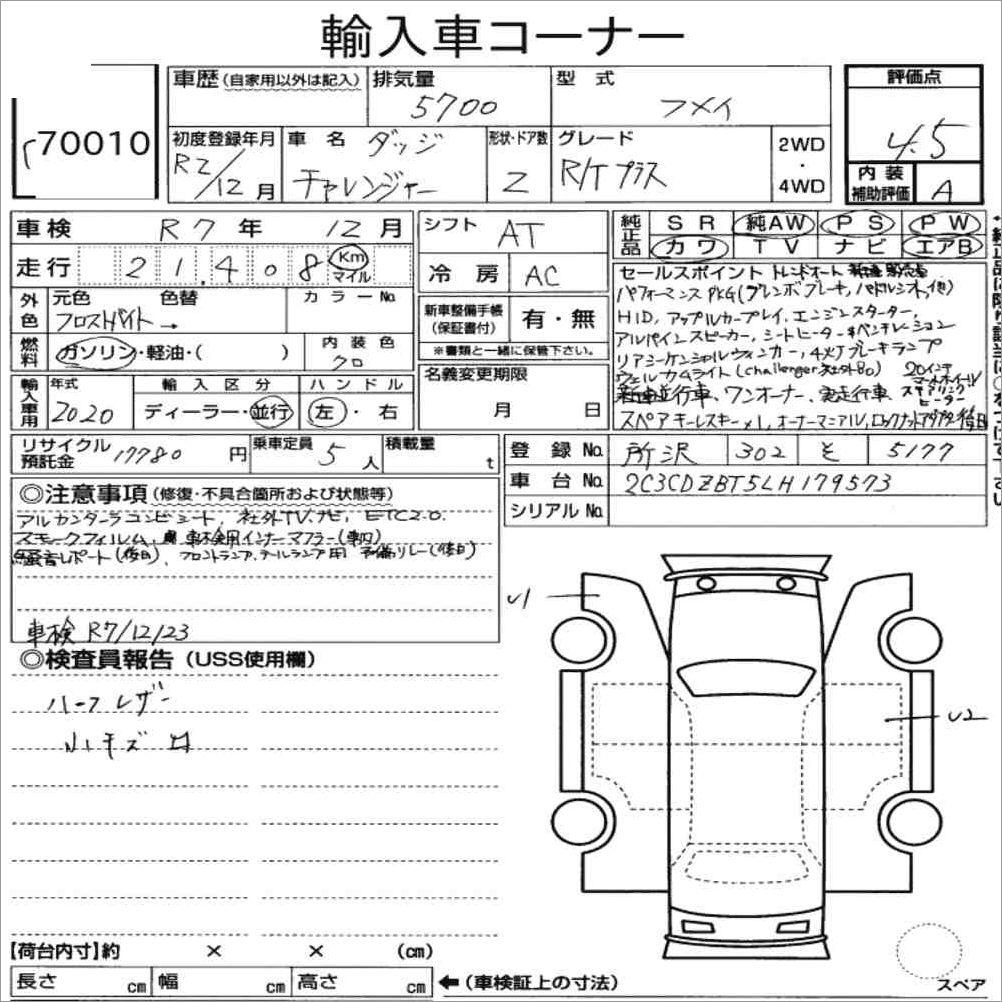 輸入車コーナー
70010
車歴 (自家用以外は記入)
排気量 5700
型式 フメイ
評価点 4.5
初度登録年月 R2/12月
車名 ダッジ チャレンジャー
形状・ドア数 2
グレード R/T プラス
2WD・4WD
内装補助評価 A
車検 R7年 12月
走行 21,408 Km マイル
シフト AT
冷房 AC
純正品 SR 純AW PS PW
カワ TV ナビ エアB
外色 元色 色替 カラーNo.
フロスホバイト →
燃料 ガソリン・軽油・( )
内装色 クロ
新車整備手帳(保証書付) 有・無
※書類と一緒に保管下さい。
セールスポイント トレンドオート 新車販売車
パフォーマンスPKG(ブレンボブレーキ, パドルシフト, 他)
HID, アップルカープレイ, エンジンスターター,
アルパインスピーカー, シートヒーター&ベンチレーション
リアシーケンシャルウィンカー, 4灯ブレーキランプ
ウェルカムライト(challenger 社外品) 20インチ
新車並行車、ワンオーナー、実走行車、ステアリングヒーター
スペアキーレスキー×1, オーナーマニアル, ロックナットアダプター
輸入車用 年式 2020
輸入区分 ディーラー・並行
ハンドル 左・右
名義変更期限 月 日
リサイクル預託金 17780円
乗車定員 5人
積載量 t
登録No. 所沢 302 そ 5177
車台No. 2C3CDZBT5LH179573
シリアルNo.
◎注意事項(修復・不具合箇所および状態等)
アルカンターラコンビシート, 社外TV, ナビ, ETC2.0.
スモークフィルム, 車検用インナーマフラー
騒音レポート(後日), フロントランプ, テールランプ用 予備リレー(後日)
車検 R7/12/23
◎検査員報告(USS使用欄)
ハーフレザー
小キズ
U1
U2
【荷台内寸】約 × × (cm)
長さ cm 幅 cm 高さ cm ←(車検証上の寸法)
スペア